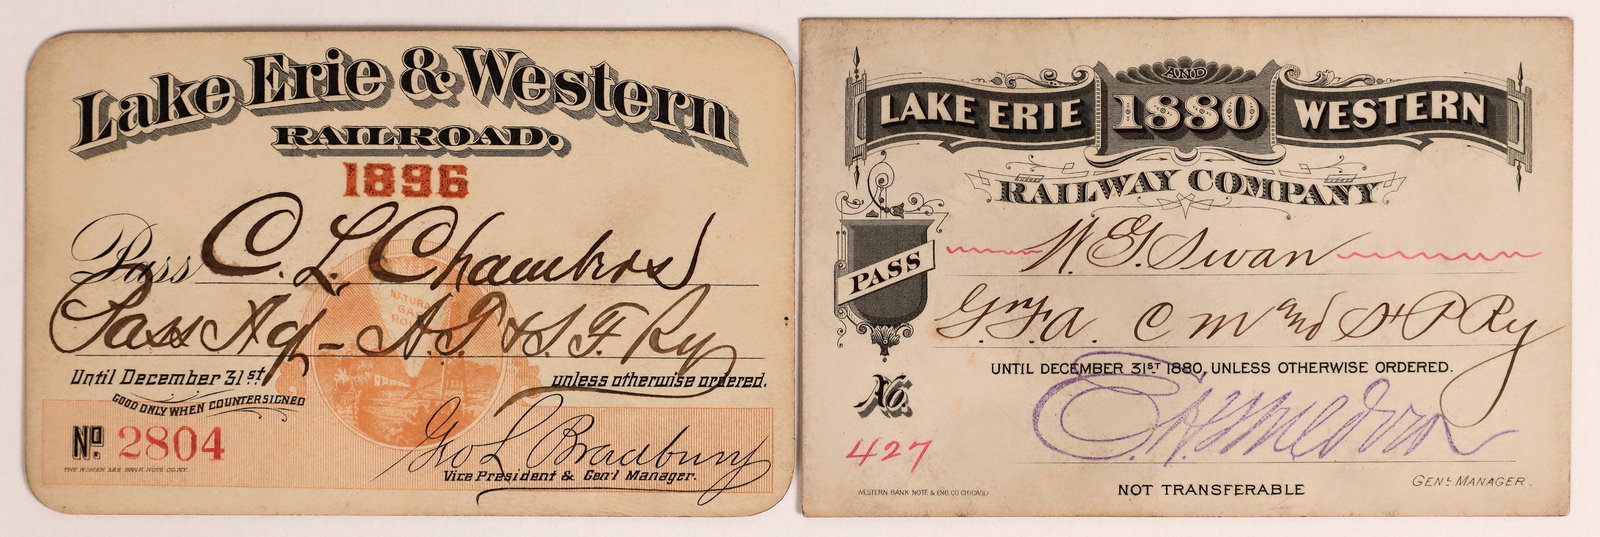 Lake Erie & Western
RAILROAD.
1896
Pass C. L. Chambers
Pass Agt - A. T. & S. F. Ry
NATURAL
GAS
ROUTE
Until December 31st unless otherwise ordered.
GOOD ONLY WHEN COUNTERSIGNED
No. 2804
Geo L Bradbury
Vice President & Gen'l Manager.
THE HOMER LEE BANK NOTE CO. N.Y.
AND
LAKE ERIE 1880 WESTERN
RAILWAY COMPANY
PASS
W. G. Swan
G. F. A. C M and St P Ry
UNTIL DECEMBER 31ST 1880, UNLESS OTHERWISE ORDERED.
No.
427
WESTERN BANK NOTE & ENG. CO CHICAGO
NOT TRANSFERABLE
GENL MANAGER.